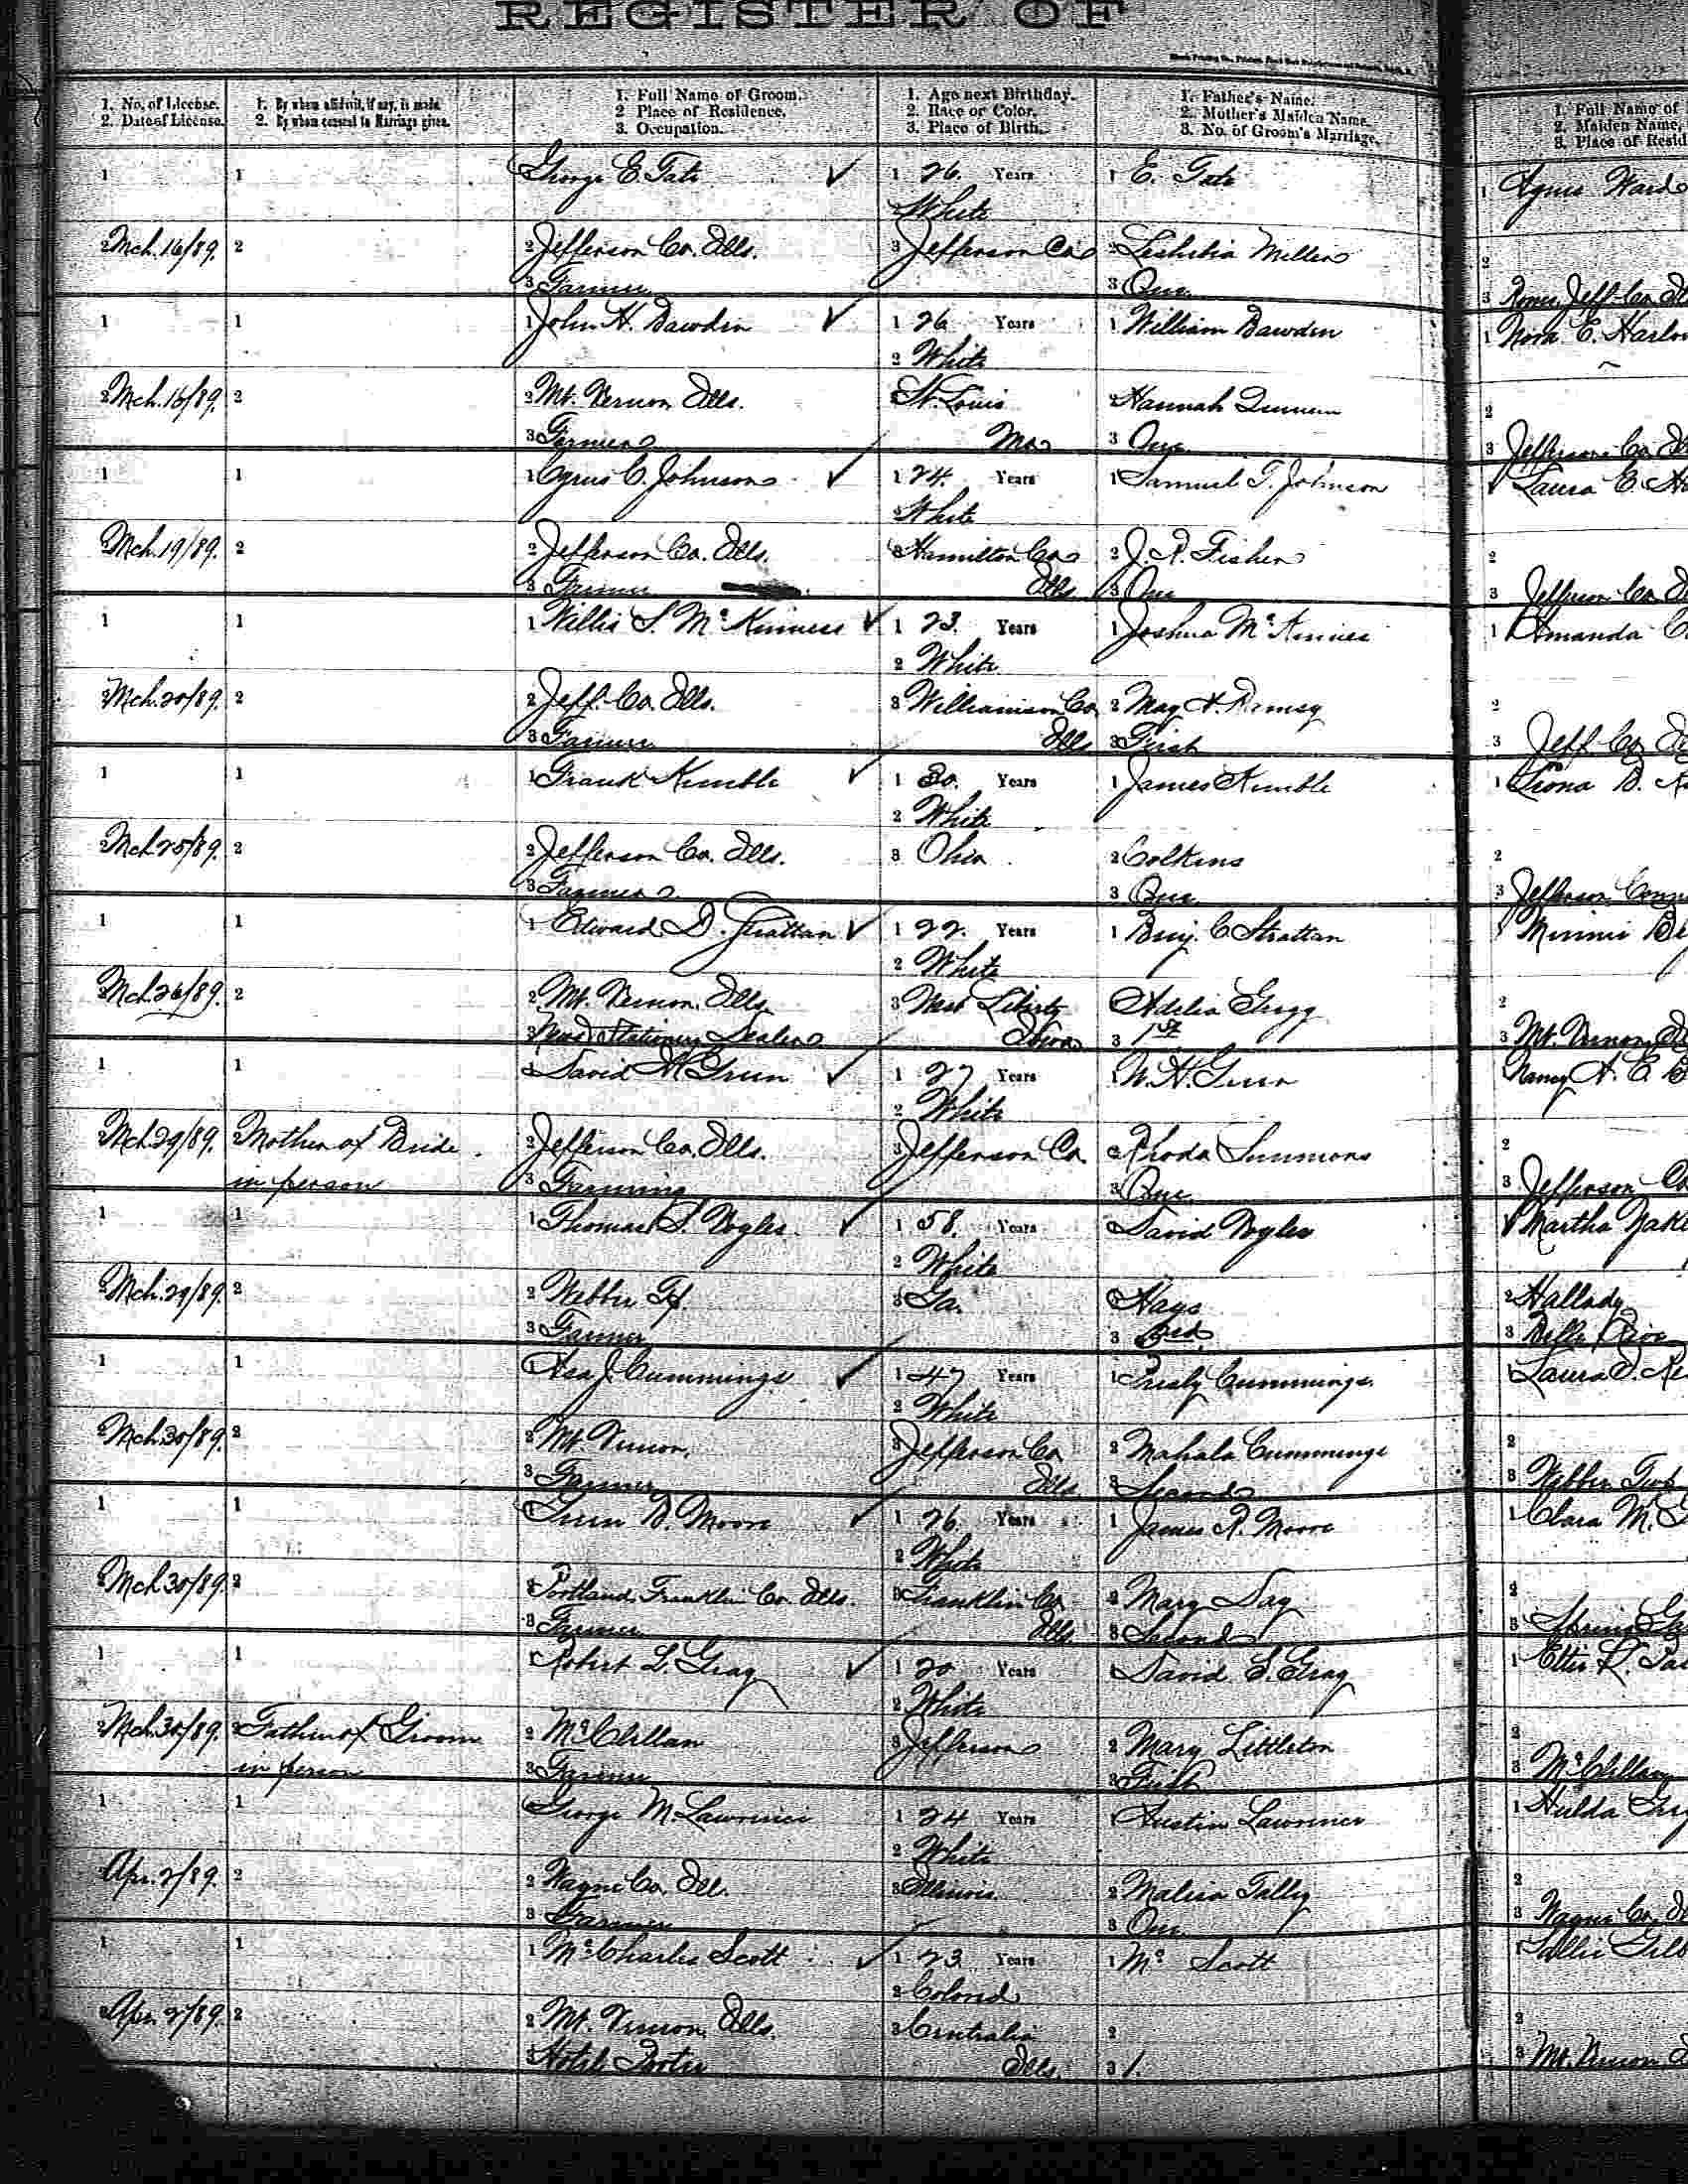 REGISTER OF
1. No. of License. 1. By whom affidavit, if any, is made. 1. Full Name of Groom. 1. Age next Birthday. 1. Father's Name. 1. Full Name of
2. Date of License. 2. By whom consent to Marriage given. 2 Place of Residence. 2. Race or Color. 2. Mother's Maiden Name. 2. Maiden Name,
3. Occupation. 3. Place of Birth. 3. No. of Groom's Marriage. 3. Place of Resid
1 1 George E. Tate 1 26 Years 1 E. Tate 1 Agnes Ward
2 White
2 Mch. 16/89. 2 2 Jefferson Co. Ills. 3 Jefferson Co 2 Miller 2
3 Farmer 3 One 3 Rome, Jeff Co
1 1 1 John H. Bawden 1 26 Years 1 William Bawden 1 Nora E. Harlow
2 White
2 Mch. 16/89. 2 2 Mt. Vernon, Ills. 3 St. Louis 2 Hannah 2
3 Farmer Mo 3 One 3 Jefferson Co
1 1 1 Cyrus C. Johnson 1 24. Years 1 Samuel T. Johnson 1 Laura E.
2 White
2 Mch. 19/89. 2 2 Jefferson Co. Ills. 3 Hamilton Co 2 J. R. Fisher 2
3 Farmer Ills 3 One 3 Jefferson Co
1 1 1 Willis S. McKinness 1 23. Years 1 Joshua McKinnes 1 Amanda C
2 White
2 Mch. 20/89. 2 2 Jeff. Co. Ills. 3 Williamson Co 2 May A. Ramsy 2
3 Farmer Ills 3 First 3 Jeff Co
1 1 1 Frank Kimble 1 30. Years 1 James Kimble 1 B.
2 White
2 Mch. 25/89. 2 2 Jefferson Co. Ills. 3 Ohio 2 Colkins 2
3 Farmer 3 One 3 Jefferson
1 1 1 Edward D. Strattan 1 22. Years 1 Benj. C Strattan 1 Minnie
2 White
2 Mch. 26/89. 2 2 Mt. Vernon, Ills 3 West Liberty Adelia Grigg 2
3 News & Stationery Dealer Iowa 3 1st 3 Mt. Vernon,
1 1 1 David M Green 1 27 Years 1 W. H. Green Nancy A. E.
2 White
2 Mch. 29/89. 2 Mother of Bride 2 Jefferson Co. Ills. 3 Jefferson Co. 2 Rhoda Simmons 2
in person 3 Farming 3 One 3 Jefferson Co
1 1 1 Thomas S. Vogles 1 58. Years David Vogles 1 Martha
2 White
2 Mch. 29/89. 2 2 Webber Tp. 3 Ga. 2 Hays 2 Hallady
3 Farmer 3 3rd 3 Belle Rive
1 1 Asa J. Cummings 1 47 Years 1 Presly Cummings. 1 Laura
2 White
2 Mch. 30/89. 2 2 Mt. Vernon. 3 Jefferson Co 2 Mahala Cummings 2
3 Farmer Ills 3 Second 3 Webber Twp
1 1 B. Moore 1 26 Years 1 James R. Moore 1 Clara M.
2 White
2 Mch 30/89. 2 2 Portland, Franklin Co. Ills. 3 Franklin Co. 2 Mary Day 2
3 Farmer Ills. 3 Second 3 Spring
1 1 Robert L. Gray 1 20 Years David S. Gray 1
2 White
2 Mch. 30/89. 2 Father of Groom 2 McClellan 3 Jefferson 2 Mary Littleton 2
in person 3 Farmer 3 First 3 McClellan
1 1 George M. Lawrence 1 24 Years 1 Austin Lawrence 1 Hulda
2 White
2 Apr. 2/89. 2 2 Wayne Co. Ill. 3 Illinois. 2 Malissa Tally 2
3 Farmer 3 One 3 Wayne Co.
1 1 1 Mc Charles Scott 1 23 Years 1 Mc Scott 1 Sallie
2 Colored
2 Apr. 2/89. 2 2 Mt. Vernon, Ills. 3 Centralia 2 2
3 Hotel Porter Ills. 3 1. 3 Mt. Vernon